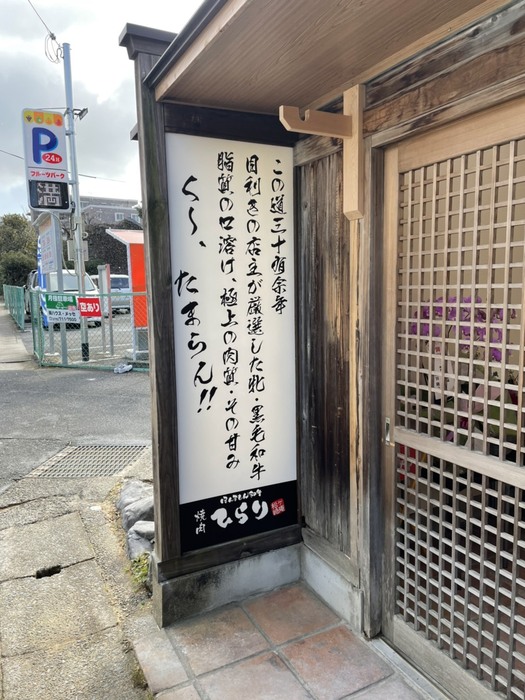 この道三十有余年
目利きの店主が厳選した牝・黒毛和牛
脂質の口溶け、極上の肉質・その甘み
く〜、たまらん!!
焼肉
ひらり
P
24h
フルーツパーク
満
月極駐車場
空あり